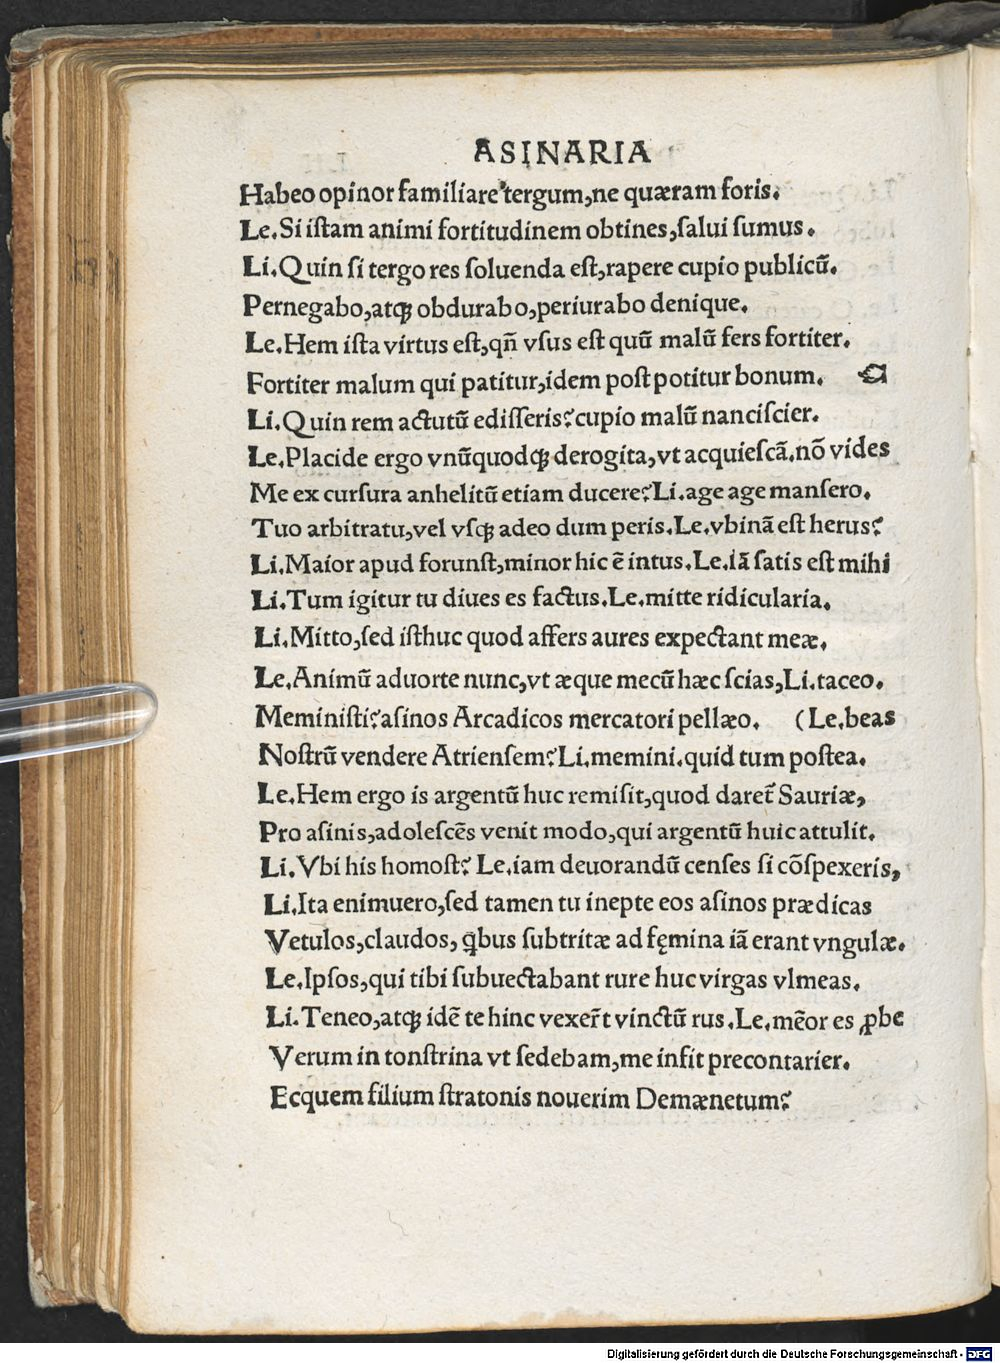 ASINARIA
Habeo opinor familiare tergum,ne quæram foris.
Le.Si iſtam animi fortitudinem obtines,ſalui ſumus.
Li.Quin ſi tergo res ſoluenda eſt,rapere cupio publicũ.
Pernegabo,atqꝫ obdurabo,periurabo denique.
Le.Hem iſta virtus eſt,qñ vſus eſt quũ malũ fers fortiter.
Fortiter malum qui patitur,idem poſt potitur bonum.
Li.Quin rem actutũ ediſſeris?cupio malũ nanciſcier.
Le.Placide ergo vnũquodqꝫ derogita,vt acquieſcã.nõ vides
Me ex curſura anhelitũ etiam ducere?Li.age age manſero.
Tuo arbitratu,vel vſqꝫ adeo dum peris.Le.vbinã eſt herus?
Li.Maior apud forunſt,minor hic ẽ intus.Le.iã ſatis eſt mihi
Li.Tum igitur tu diues es factus.Le.mitte ridicularia.
Li.Mitto,ſed iſthuc quod affers aures expectant meæ.
Le.Animũ aduorte nunc,vt æque mecũ hæc ſcias,Li.taceo.
Meminiſti?aſinos Arcadicos mercatori pellæo. (Le.beas
Noſtrũ vendere Atrienſem?Li.memini.quid tum poſtea.
Le.Hem ergo is argentũ huc remiſit,quod daret̃ Sauriæ,
Pro aſinis,adoleſcẽs venit modo,qui argentũ huic attulit.
Li.Vbi his homoſt? Le.iam deuorandũ cenſes ſi cõſpexeris,
Li.Ita enimuero,ſed tamen tu inepte eos aſinos prædicas
Vetulos,claudos, q̃bus ſubtritæ ad fęmina iã erant vngulæ.
Le.Ipſos,qui tibi ſubuectabant rure huc virgas vlmeas.
Li.Teneo,atqꝫ idẽ te hinc vexer̃t vinctũ rus.Le.mẽor es ꝓbe
Verum in tonſtrina vt ſedebam,me infit precontarier.
Ecquem filium ſtratonis nouerim Demænetum?
Digitalisierung gefördert durch die Deutsche Forschungsgemeinschaft - DFG